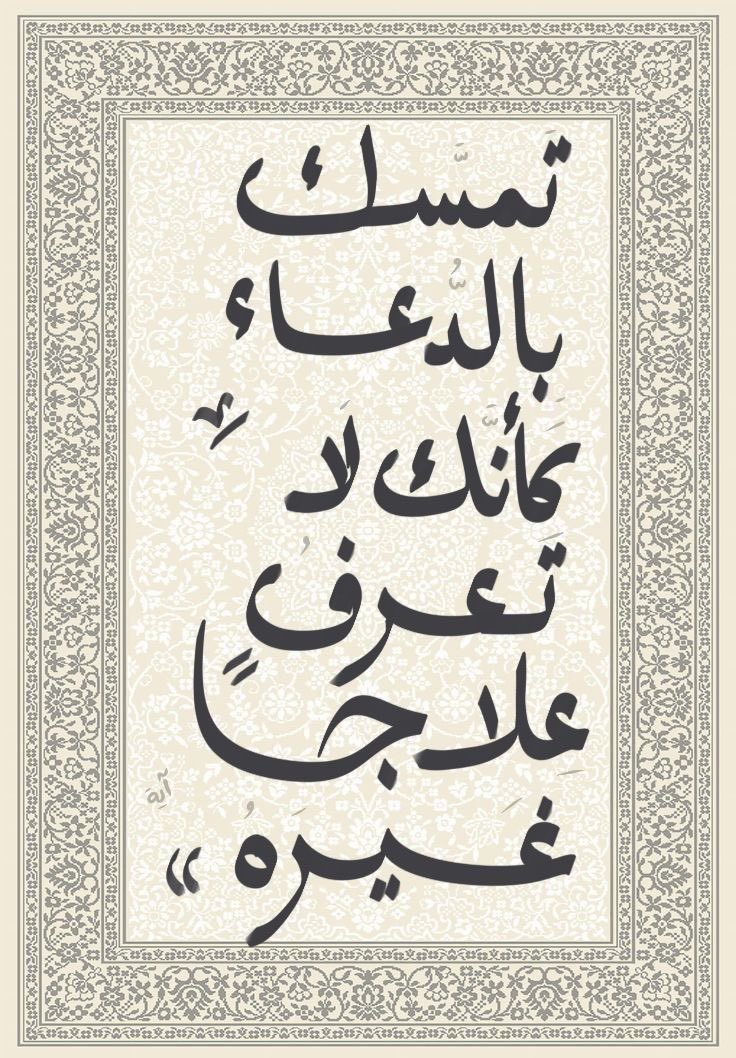 تمسَّك
بالدُّعاء
كَأنَّك لَا
تَعرفُ
عِلاجًا
غَيرَهُ »
آيَة